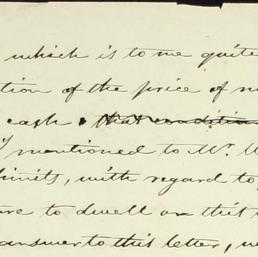 which is to me quite
tion of the price of m
cash that condition
mentioned to Mr. W
limits, with regard to
are to dwell on this
answer to this letter, w